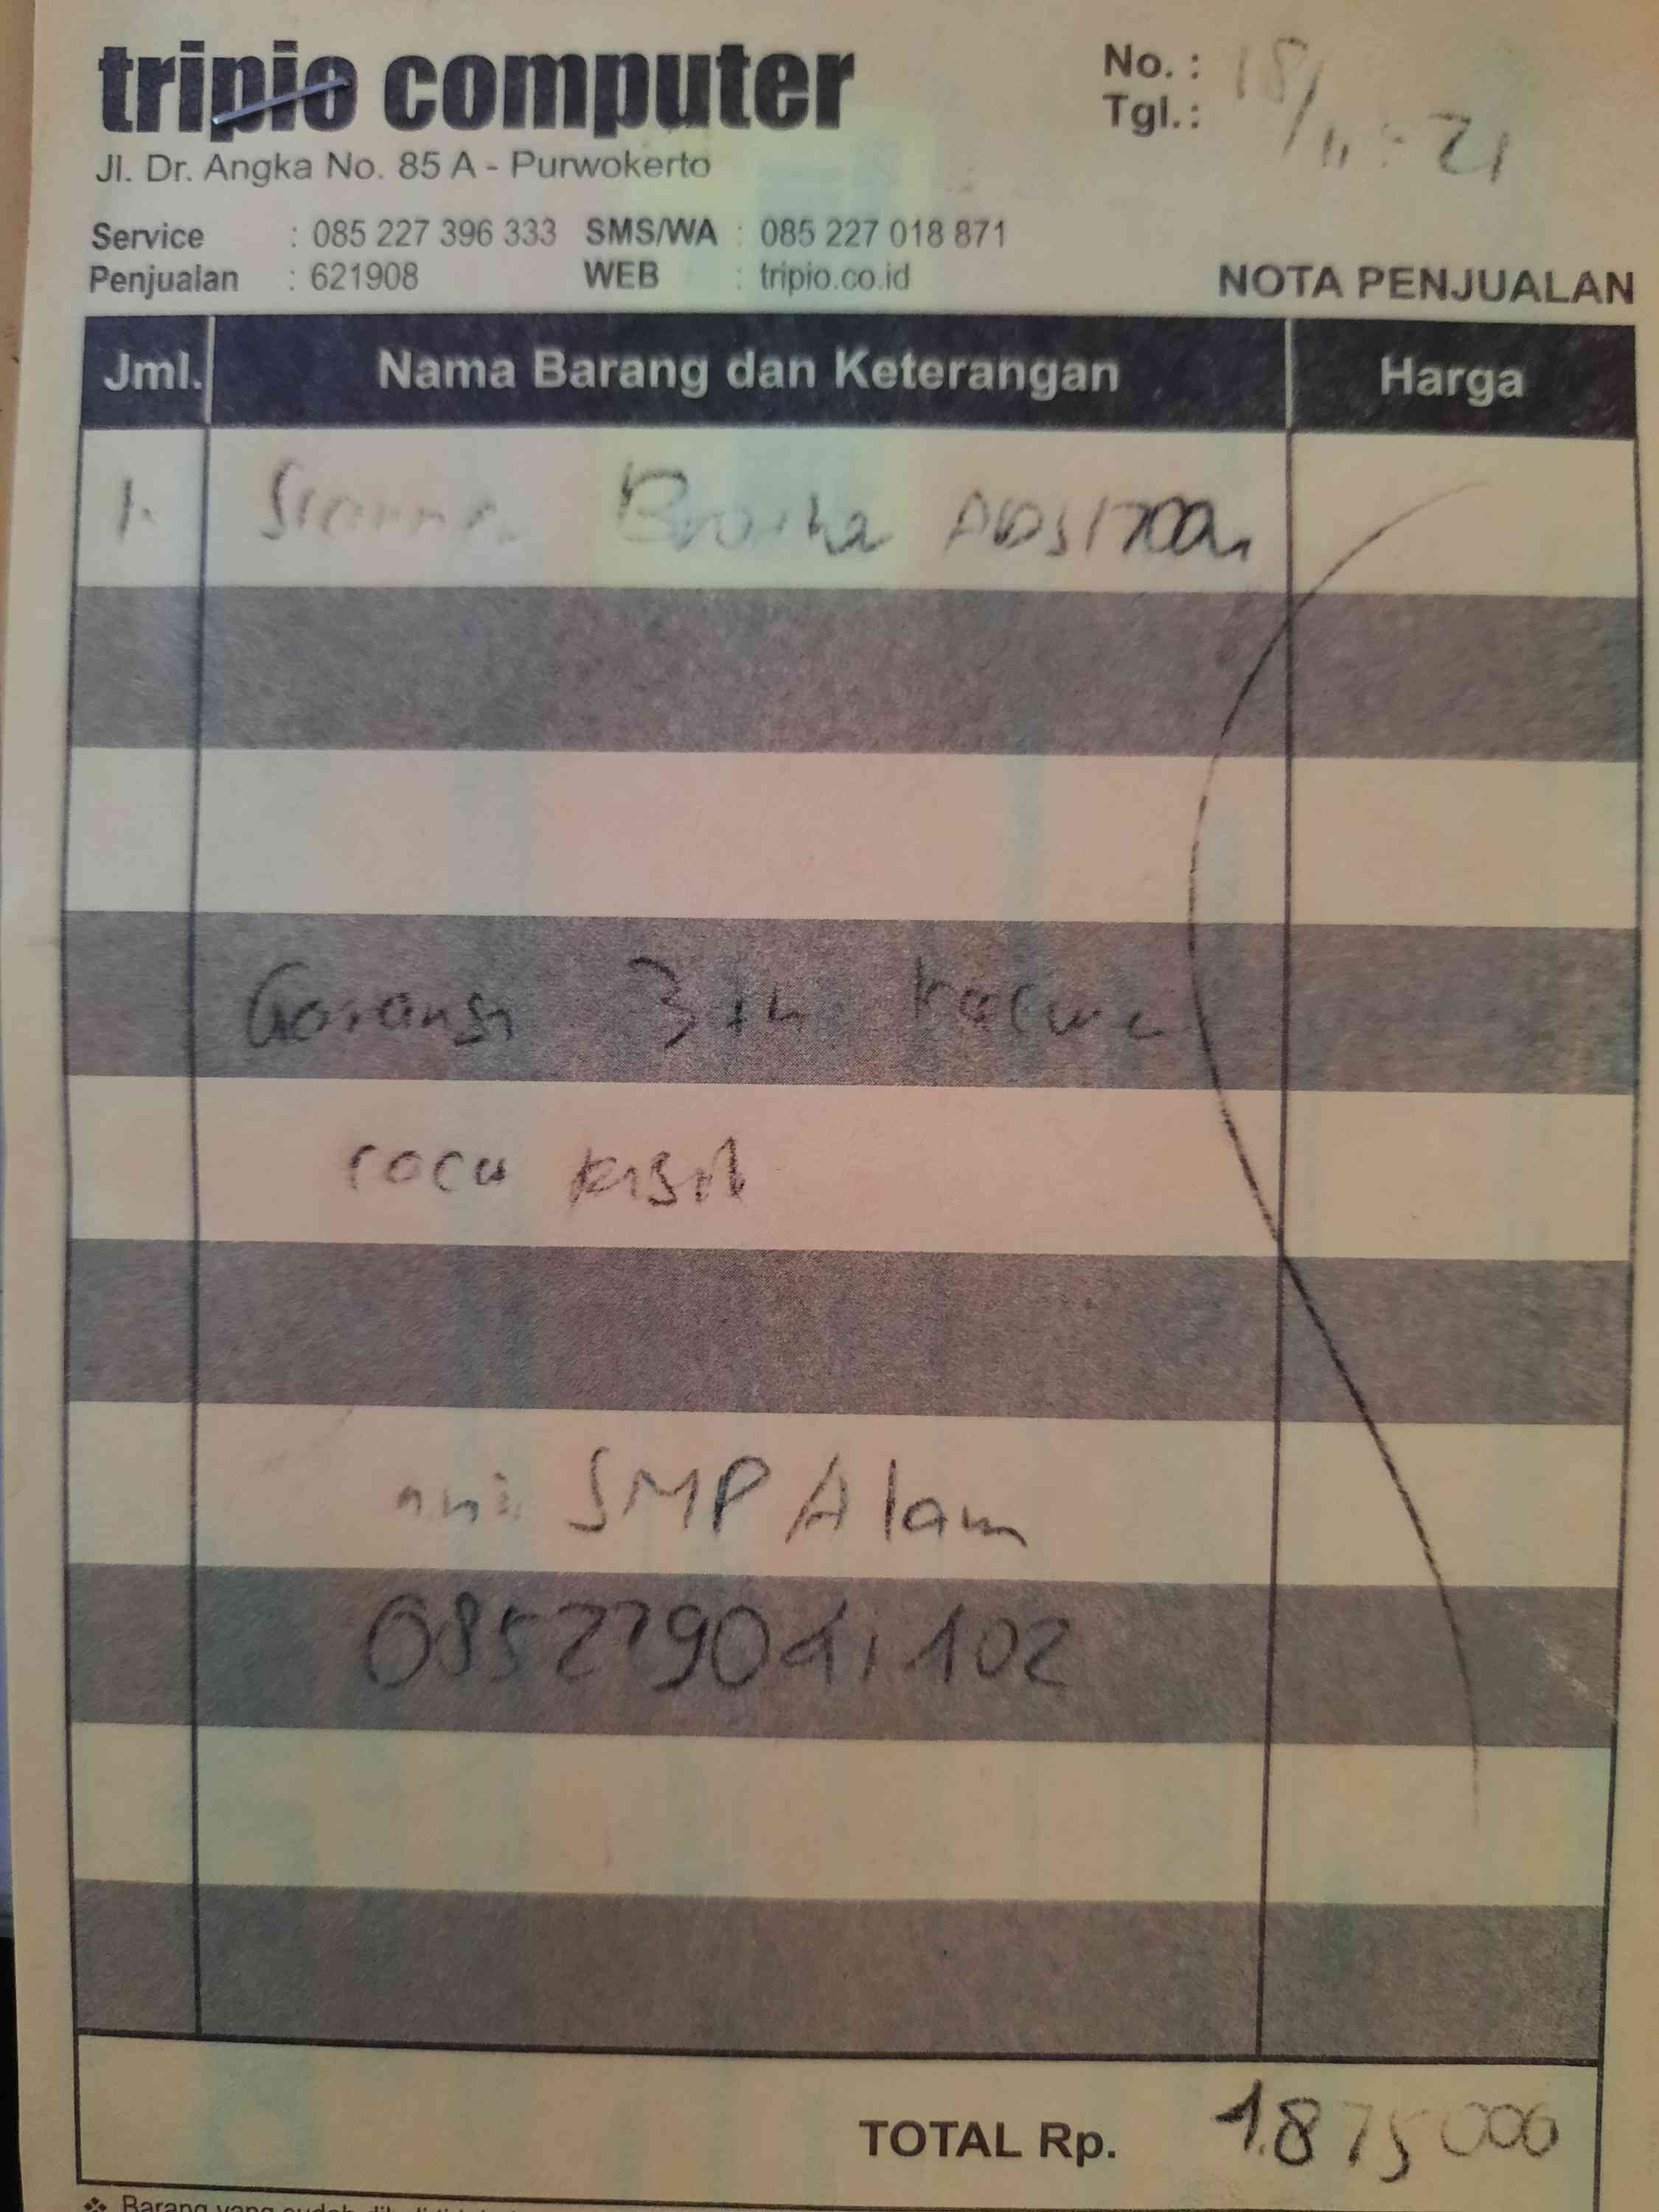 tripio computer
No. :
Tgl.: 18/11-21
Jl. Dr. Angka No. 85 A - Purwokerto
Service : 085 227 396 333 SMS/WA : 085 227 018 871
Penjualan : 621908 WEB : tripio.co.id
NOTA PENJUALAN
Jml. Nama Barang dan Keterangan Harga
1. Scanner Brother ADS1700w
Garansi 3 th
SMP Alam
102
TOTAL Rp. 1.875000
❖ Barang yang sudah